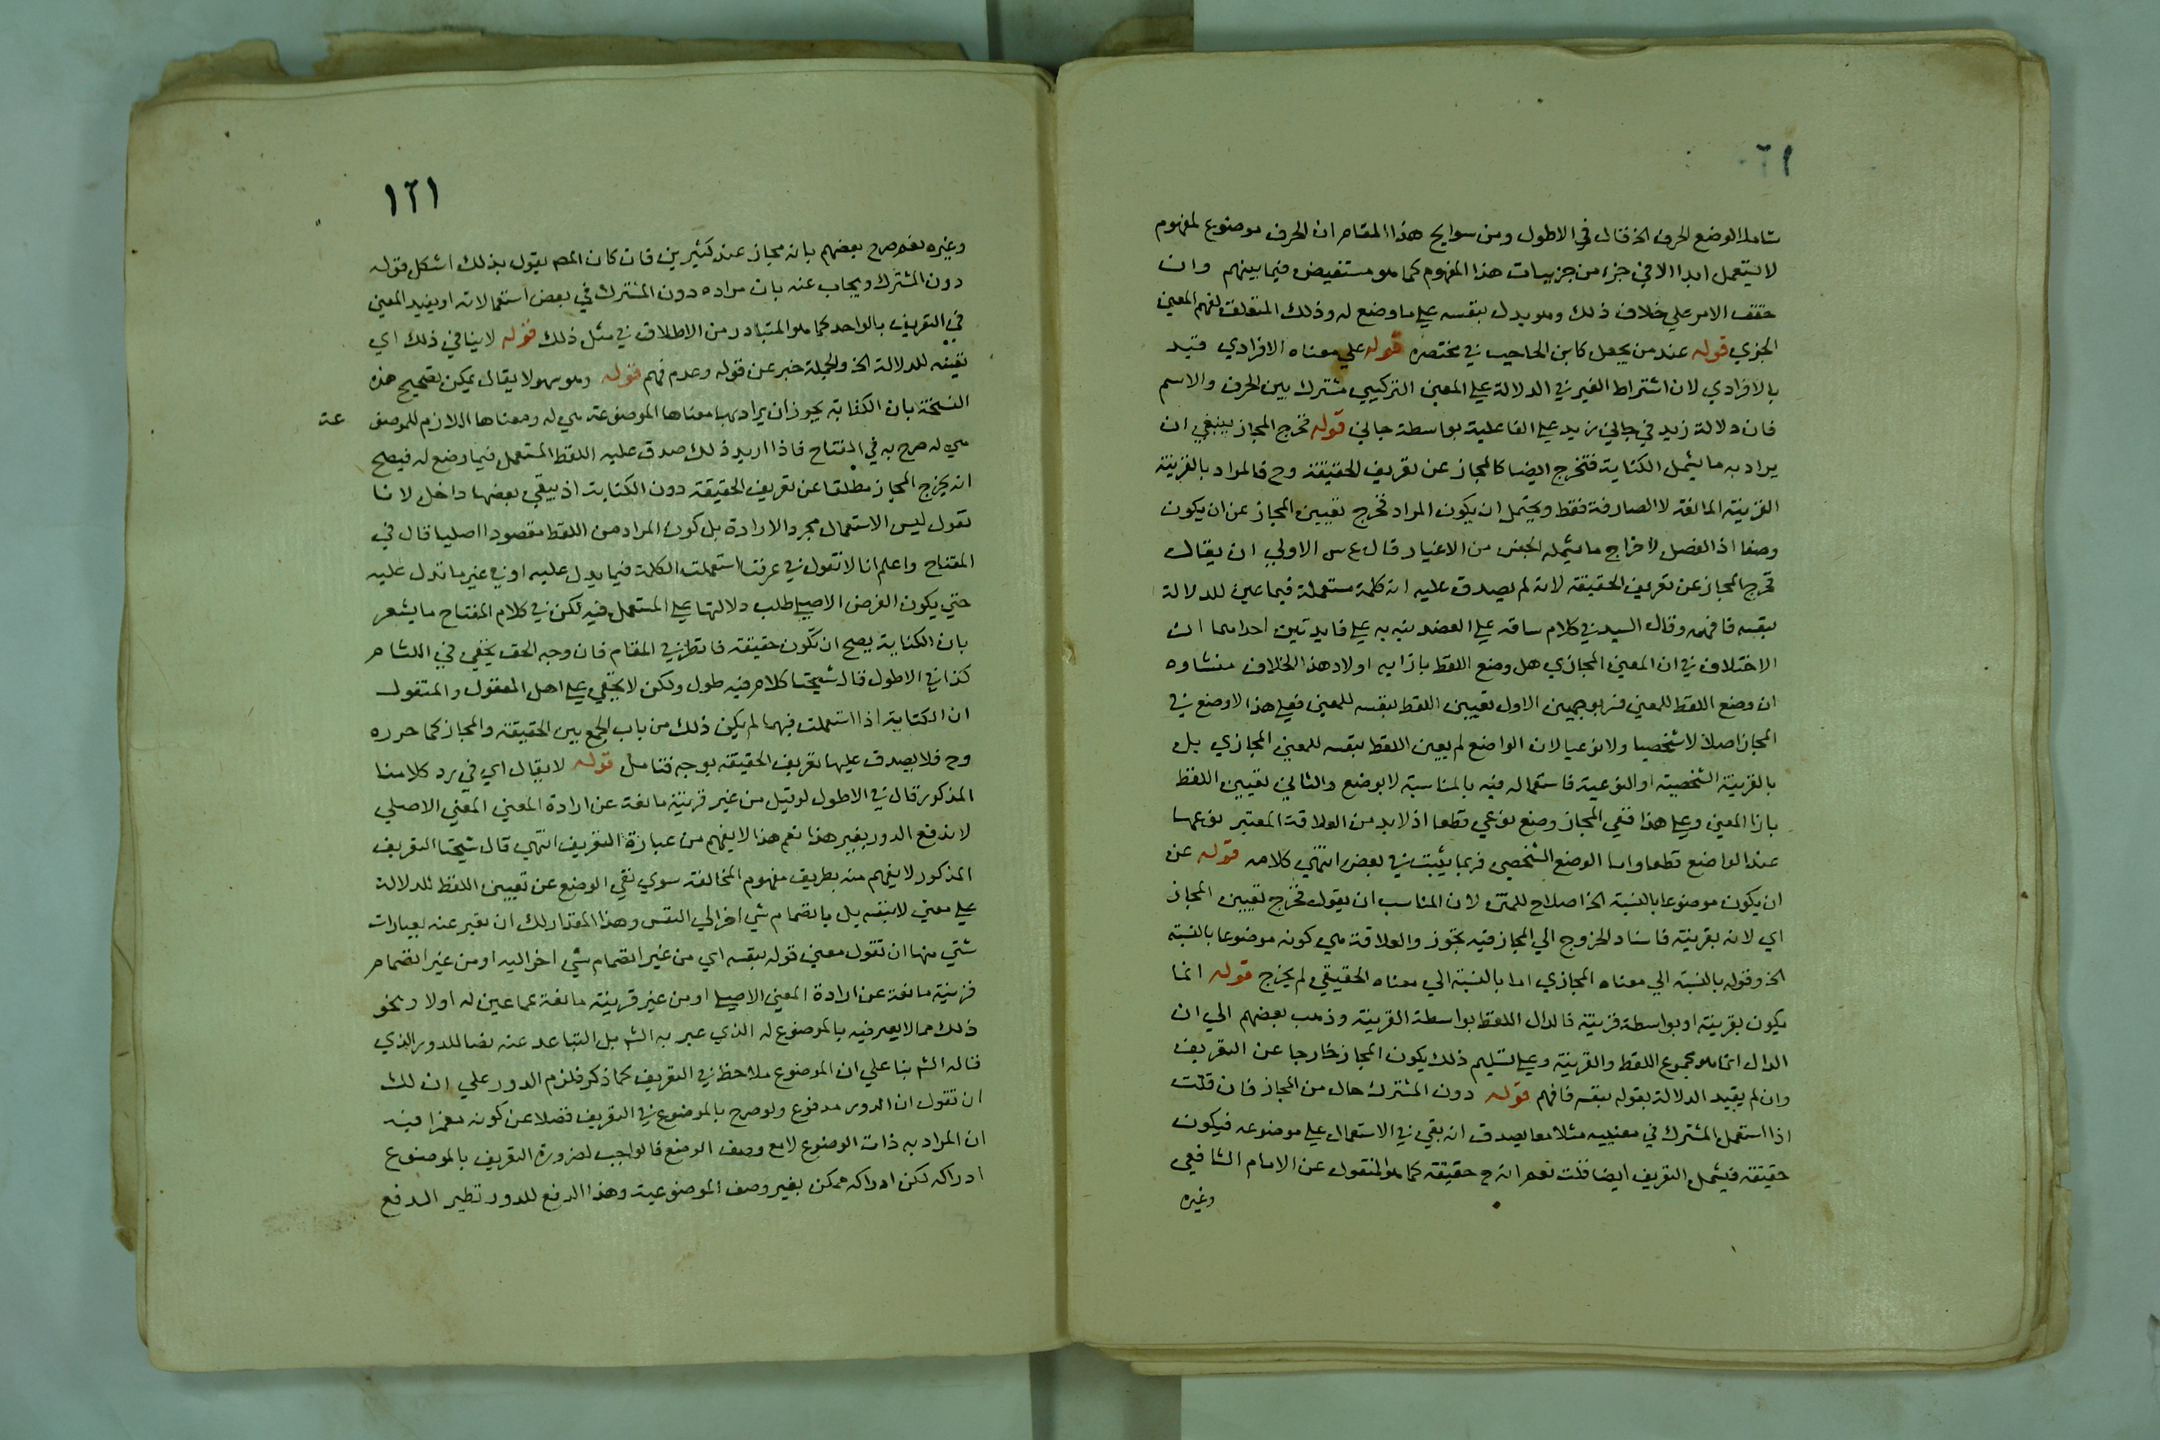 شاملا لوضع الحرف الخ قال في الاطول ومن سوانح هذا المقام ان الحرف موضوع لمفهوم
لا يستعمل ابدا الا في جزء من جزييات هذا المفهوم كما هو مستفيض فيما بينهم وان
حقق الامر علي خلاف ذلك وهو يدل بنفسه علي ما وضع له وذلك المتعلق لفهم المعني
الجزي قوله عند من يجعل كابن الحاجب في مختصره قوله علي معناه الافرادي قيد
بالافرادي لان اشتراط الغير في الدلالة علي المعني التركيبي مشترك بين الحرف والاسم
فان دلالة زيد في جاني زيد علي الفاعلية بواسطة جاني قوله فخرج المجاز ينبغي ان
يراد به ما يشمل الكناية فتخرج ايضا كالمجاز عن تعريف الحقيقة وح فالمراد بالقرينة
القرينة المانعة لا الصارفة فقط ويحتمل ان يكون المراد فخرج تعيين المجاز عن ان يكون
وضعا اذ الفصل لاخراج ما يشمله الجنس من الاغيار قال ع س الاولي ان يقال
فخرج المجاز عن تعريف الحقيقة لانه لم يصدق عليه انه كلمة مستعملة فيما عين للدلالة
بنفسه فافهم وقال السيد في كلام ساقه علي العضد نبه به علي فايدتين احداهما ان
الاختلاف في ان المعني المجازي هل وضع اللفظ بازايه اولا وهذا الخلاف منشاوه
ان وضع اللفظ للمعني فسر بوجهين الاول تعيين اللفظ بنفسه للمعني فعلي هذا لا وضع في
المجاز اصلا لا شخصيا ولا نوعيا لان الواضع لم يعين اللفظ بنفسه للمعني المجازي بل
بالقرينة الشخصية او النوعية فاستعماله فيه بالمناسبة لا بوضع والثاني تعيين اللفظ
بازا المعني وعلي هذا ففي المجاز وضع نوعي قطعا اذ لابد من العلاقة المعتبر نوعها
عند الواضع قطعا واما الوضع الشخصي فربما يثبت في بعض انتهي كلامه قوله عن
ان يكون موضوعا بالنسبة الخ اصلاح للمتن لان المناسب ان يقول فخرج تعيين المجاز
اي لانه بقرينة فاسناد الخروج الي المجاز فيه تجوز والعلاقة هي كونه موضوعا بالنسبة
الخ وقوله بالنسبة الي معناه المجازي اما بالنسبة الي معناه الحقيقي لم يخرج قوله انما
يكون بقرينة او بواسطة قرينة فالدال اللفظ بواسطة القرينة وذهب بعضهم الي ان
الدال انما هو مجموع اللفظ والقرينة وعلي تسليم ذلك يكون المجاز خارجا عن التعريف
وان لم يقيد الدلالة بقوله بنفسه فافهم قوله دون المشترك حال من المجاز فان قلت
اذا استعمل المشترك في معنييه مثلا معا يصدق انه بقي في الاستعمال علي موضوعه فيكون
حقيقة فيشمل التعريف ايضا قلت نعم انه ح حقيقة كما هو المنقول عن الامام الشافعي
وغيره
١٢١
وغيره نعم صرح بعضهم بانه مجاز عند كثيرين فان كان المص يقول بذلك اشكل قوله
دون المشترك ويجاب عنه بان مراده دون المشترك في بعض استعمالاته او يقيد المعني
في التعريف بالواحد كما هو المتبادر من الاطلاق في مثل ذلك قوله لا ينافي ذلك اي
تعينه للدلالة الخ والجملة خبر عن قوله وعدم فهم قوله وهو سهو لا يقال يمكن تصحيح هذه
النسخة بان الكناية يجوز ان يراد بها معناها الموضوعة هي له ومعناها اللازم للموضوعة
هي له صرح به في المفتاح فاذا اريد ذلك صدق عليه اللفظ المستعمل فيما وضع له فيصح
انه يخرج المجاز مطلقا عن تعريف الحقيقة دون الكناية اذ يبقي بعضها داخل لانا
نقول ليس الاستعمال مجرد الارادة بل كون المراد من اللفظ مقصودا اصليا قال في
المفتاح واعلم انا لا نقول في عرفنا استعملت الكلمة فيما يدل عليه او في غير ما تدل عليه
حتي يكون الغرض الاصلي طلب دلالتها علي المستعمل فيه لكن في كلام المفتاح ما يشعر
بان الكناية يصح ان تكون حقيقة فانظر في المقام فان وجه الحق يخفي في اللثام
كذا في الاطول قال شيخنا كلام فيه طول ولكن لا يخفي علي اهل المعقول والمنقول
ان الكناية اذا استعملت فيهما لم يكن ذلك من باب الجمع بين الحقيقة والمجاز كما حرره
وح فلا يصدق عليها تعريف الحقيقة بوجه فتامل قوله لا يقال اي في رد كلامنا
المذكور قال في الاطول لو قيل من غير قرينة مانعة عن ارادة المعني المعني الاصلي
لاندفع الدور بغير هذا نعم هذا لا يفهم من عبارة التعريف انتهي قال شيخنا التعريف
المذكور لا يفهم منه بطريق مفهوم المخالفة سوي نفي الوضع عن تعيين اللفظ للدلالة
علي معني لا بنفسه بل بانضمام شي اخر الي النفس وهذا المقدار لك ان تعبر عنه بعبارات
شتي منها ان تقول معني قوله بنفسه اي من غير انضمام شي اخر اليه او من غير انضمام
قرينة مانعة عن ارادة المعني الاصلي او من غير قرينة مانعة عما عين له اولا ونحو
ذلك مما لا يعبر فيه بالموضوع له الذي عبر به الش بل التباعد عنه نفيا للدور الذي
قاله الش بنا علي ان الموضوع ملاحظ في التعريف كما ذكر فلزم الدور علي ان لك
ان تقول ان الدور مدفوع ولو صرح بالموضوع في التعريف فضلا عن كونه مضمرا فيه
ان المراد به ذات الموضوع لا مع وصف الوضع فالواجب لضرورة التعريف بالموضوع
ادراكه لكن ادراكه ممكن بغير وصف الموضوعية وهذا الدفع للدور نظير الدفع